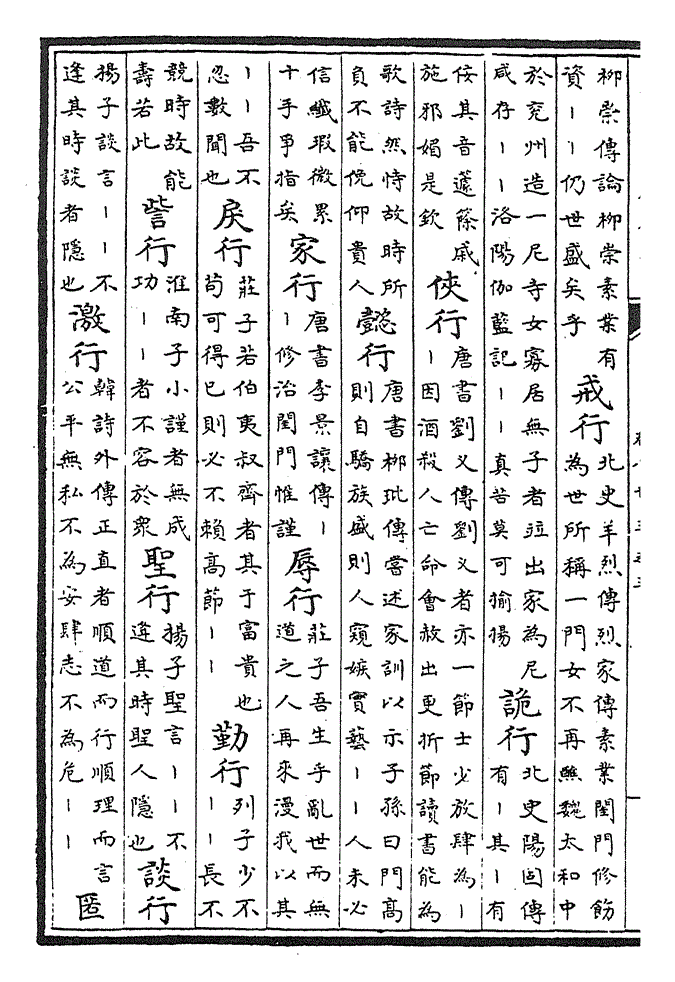 柳崇傳論柳崇素業有資丨丨仍世盛矣乎 戒行 北史羊烈傳烈家傳素業閨門修飭為世所稱一門女不再醮魏太和中
於兖州造一尼寺女寡居無子者並出家為尼咸存丨丨洛陽伽藍記丨丨真苦莫可揄揚 詭行 北史陽固傳有丨其丨有
佞其音蘧篨戚施邪媚是欽 俠行 唐書劉乂傳劉乂者亦一節士少放肆為丨丨因酒殺人亡命會赦出更折節讀書能為
歌詩然恃故時所負不能俛仰貴人 懿行 唐書柳玭傳嘗述家訓以示子孫曰門髙則自驕族盛則人窺嫉實藝丨丨人未必
信纎瑕微累十手爭指矣 家行 唐書李景讓傳丨丨修治閨門惟謹 辱行 莊子吾生乎亂世而無道之人再來漫我以其
丨丨吾不忍數聞也 戾行 莊子若伯夷叔齊者其于富貴也苟可得已則必不賴髙節丨丨 勤行 列子少不丨丨長不
競時故能壽若此 訾行 淮南子小謹者無成功丨丨者不容於衆 聖行 揚子聖言丨丨不逢其時聖人隱也 談行
揚子談言丨丨不逢其時談者隱也 激行 韓詩外傳正直者順道而行順理而言公平無私不為安肆志不為危丨丨 匿